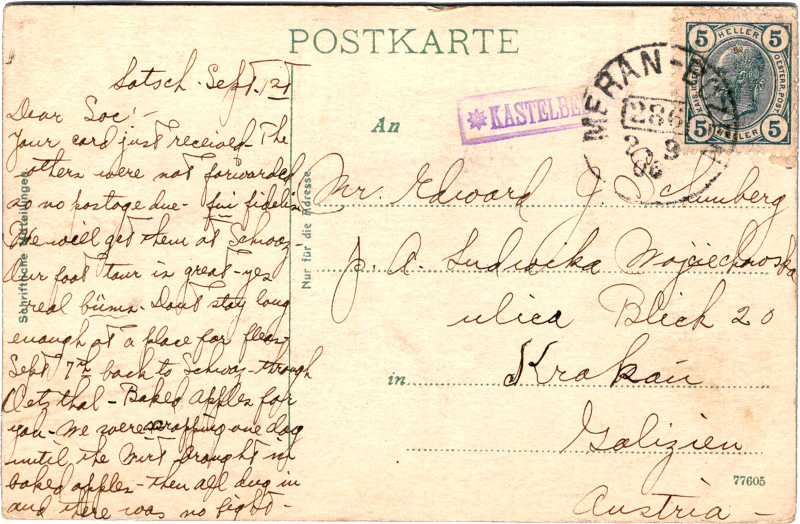 POSTKARTE
Sept. 1st
Dear Soc:-
Your card just received The
others were not forwarded
so no postage due -
We will get them at Schwaz -
Our foot tour is great - yes
real büms - Dont stay long
enough at a place for fleas
Sept 7th back to Schwaz - through
Oetzthal - Baked apples for
you - We were scrapping one day
until the Wirt brought in
baked apples - then all dug in
and there was no fight -
Schriftliche Mitteilungen.
Nur für die Adresse.
KASTELBE
MERAN-B
286
9
06
5 HELLER 5
5 HELLER 5
An
Mr. Edward J. Schumberg
p. A. Ludwika Wojciechowska
ulica Blich 20
in Krakau
Galizien
Austria -
77605